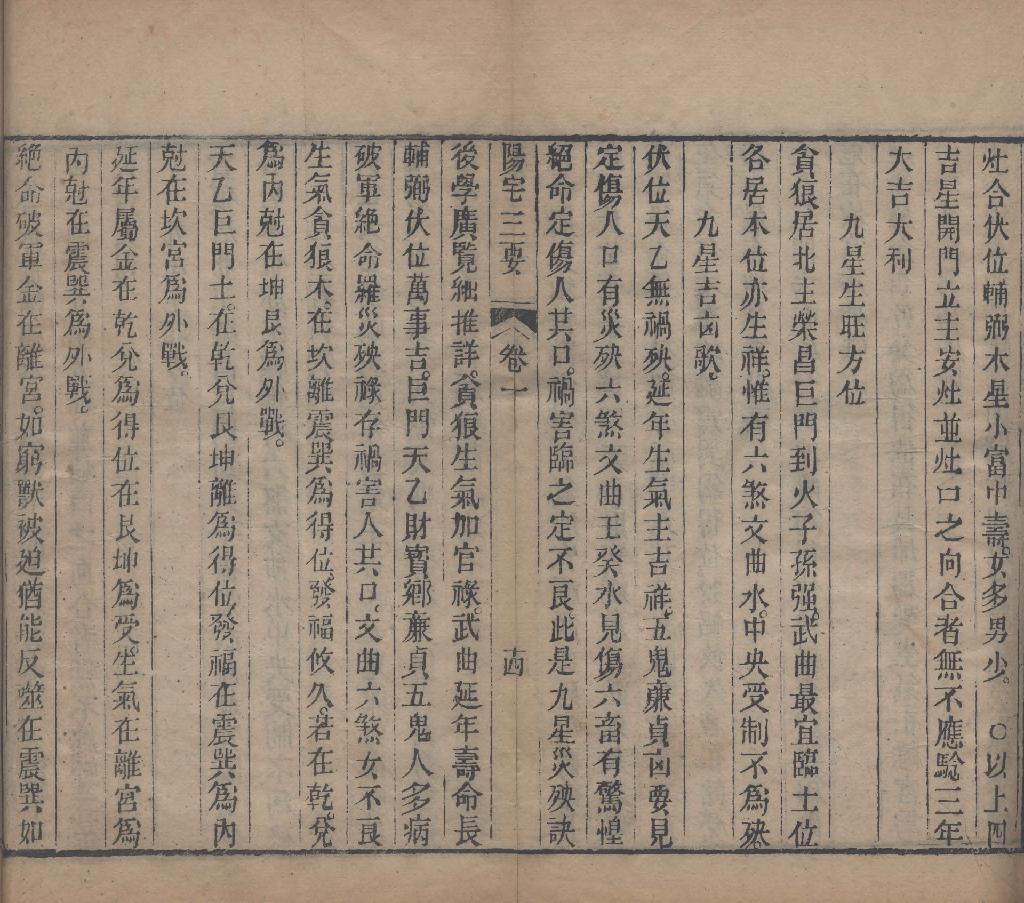 灶合伏位輔弼木星小富中壽。女多男少。 ○以上四
吉星開門立主安灶並灶口之向合者無不應驗三年
大吉大利
九星生旺方位
貪狼居北主榮昌巨門到火子孫强。武曲最宜臨土位
各居本位亦生祥。惟有六煞文曲水。中央受制不爲殃。
九星吉凶歌。
伏位天乙無禍殃。延年生氣主吉祥。五鬼廉貞凶要見
定傷人口有災殃六煞文曲壬癸水見傷六畜有驚惶
絕命定傷人共口。禍害臨之定不良。此是九星災殃訣
陽宅三要 卷一 十四
後學廣覽細推詳。貪狼生氣加官祿。武曲延年壽命長
輔弼伏位萬事吉。巨門天乙財寶鄉廉貞五鬼人多病
破軍絕命罹災殃祿存禍害人共口。文曲六煞女不良
生氣貪狼木。在坎離震巽爲得位。發福攸久。若在乾兌
爲內尅在坤艮爲外戰。
天乙巨門土。在乾兌艮坤離爲得位發福在震巽爲內
尅在坎宮爲外戰。
延年屬金在乾兌爲得位在艮坤爲受生。氣在離宮爲
內尅在震巽爲外戰。
絕命破軍金在離宮。如窮獸被迫猶能反噬在震巽如